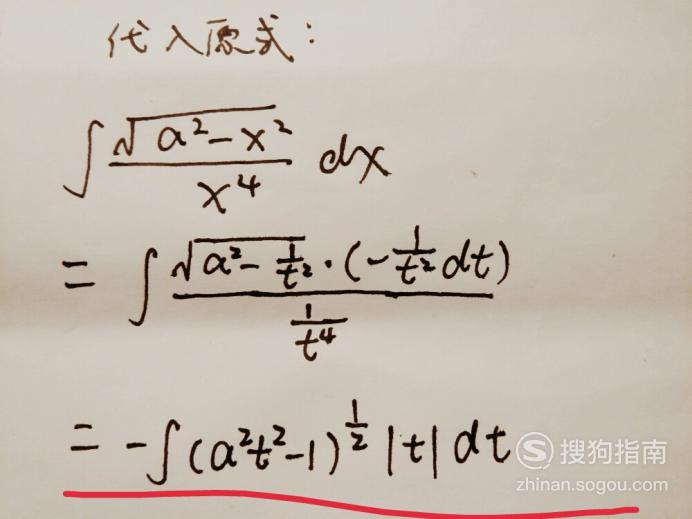 代入原式:
∫ √(a²-x²) / x⁴ dx
= ∫ √(a²-1/t²)·(-1/t² dt) / (1/t⁴)
= -∫(a²t²-1)^(1/2) |t| dt
S 搜狗指南
zhinan.sogou.com